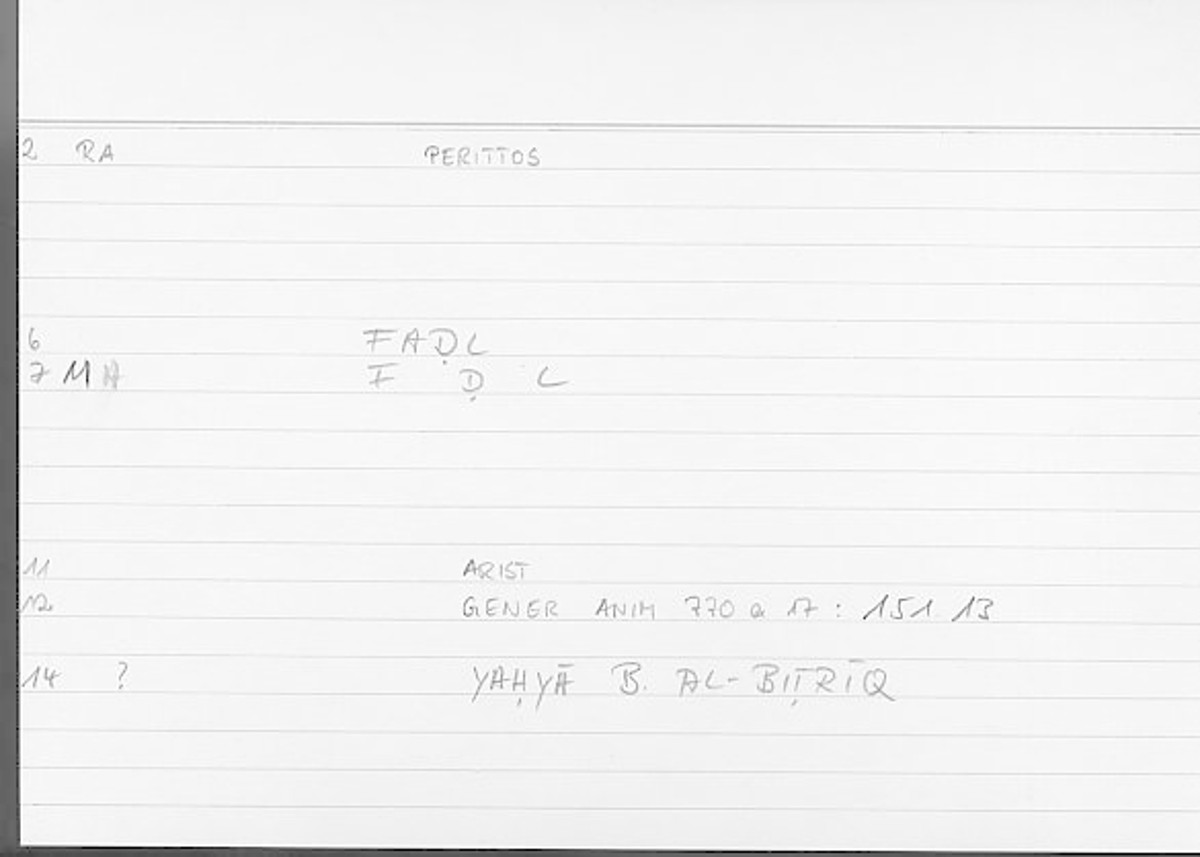 2 RA PERITTOS
6 FAḌL
7 MA F Ḍ L
11 ARIST
12 GENER ANIM 770 a 17 : 151.13
14 ? YAḤYĀ B. AL-BIṬRĪQ